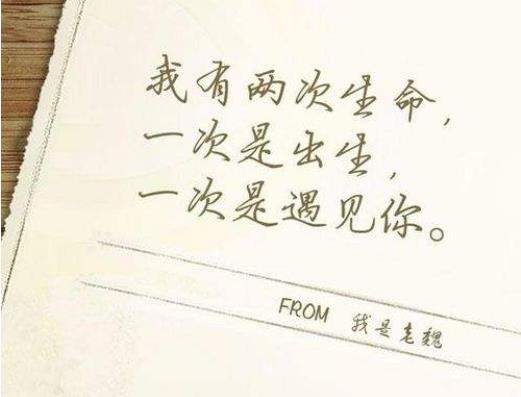 我有两次生命，
一次是出生，
一次是遇见你。
FROM 我是老魏